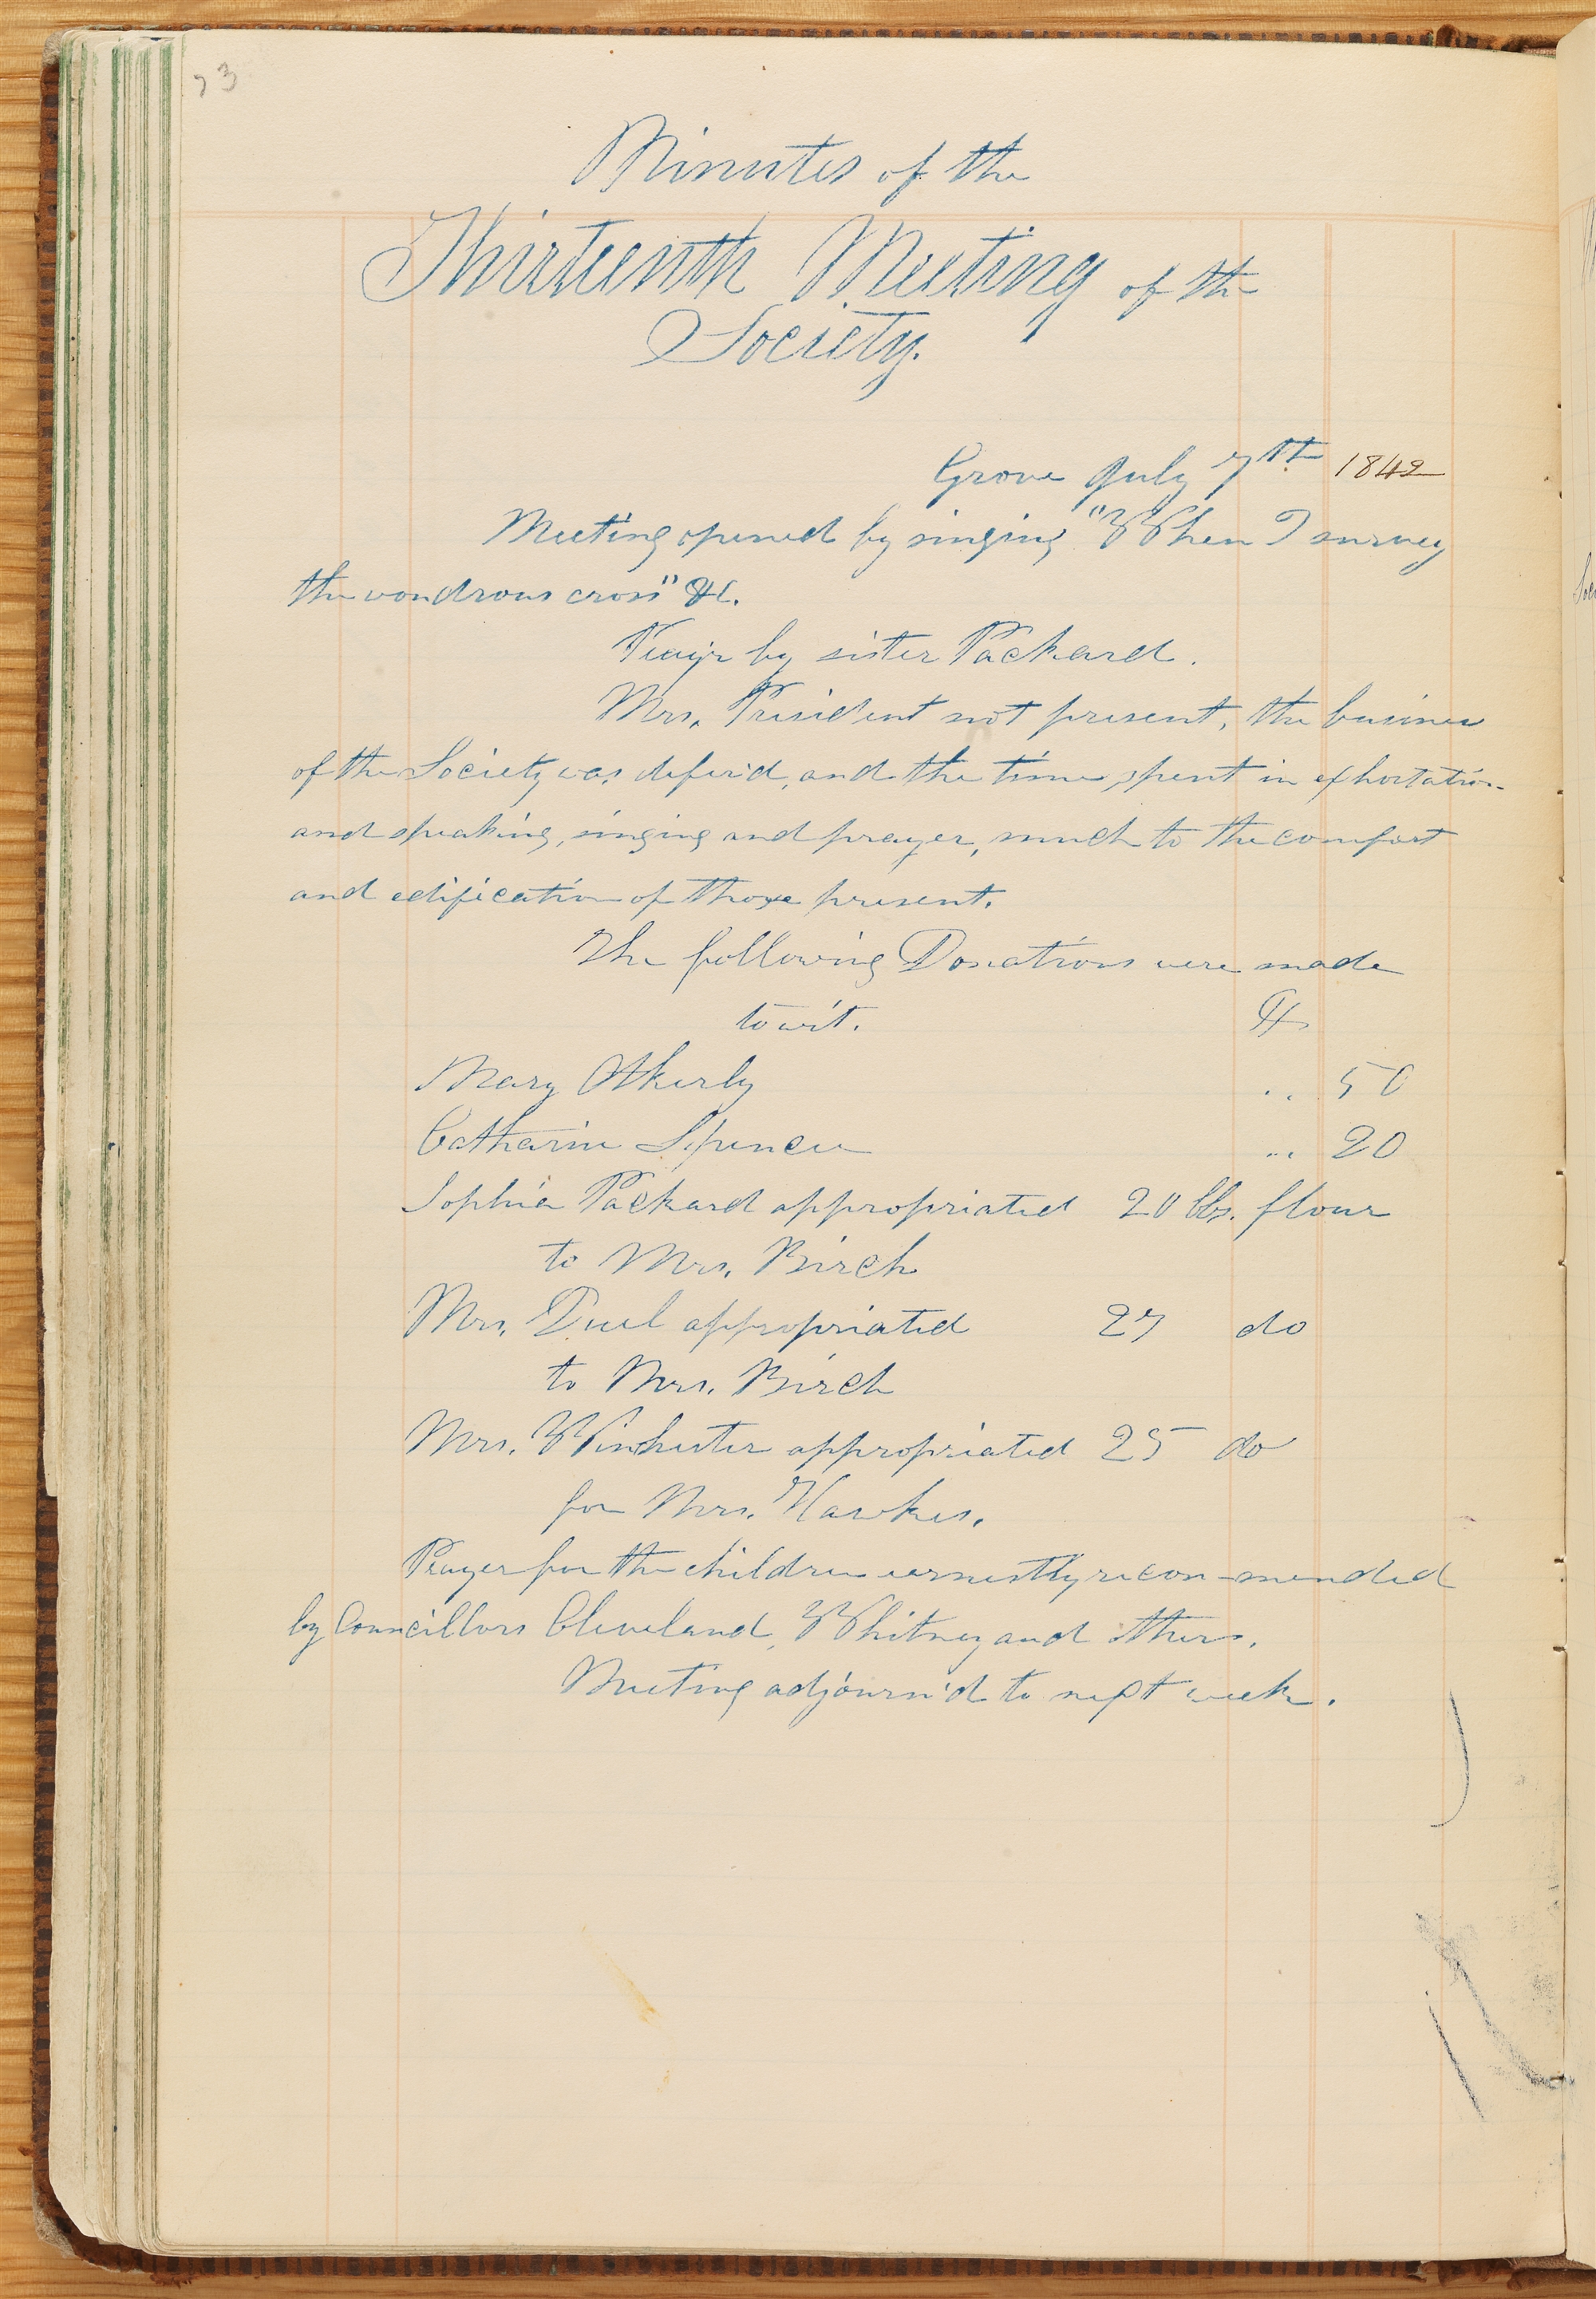 73
Minutes of the
Thirteenth Meeting of the
Society.
Grove July 7th 1842
Meeting opened by singing "When I survey
the wondrous cross" &c.
by sister Packard.
Mrs. President not present, the business
of the Society was defer'd, and the time spent in exhortation
and speaking, singing and prayer, much to the comfort
and edification of those present.
The following Donations were made
to wit. $
Mary Otherly .. 50
Catharine Spencer .. 20
Sophia Packard appropriated 20 lbs. flour
to Mrs. Birch
Mrs. Duel appropriated 27 do
to Mrs. Birch
Mrs. Winchester appropriated 25 do
for Mrs. Hawkes.
Prayer for the children earnestly recom-mended
by Councillors Cleveland, Whitney and others.
Meeting adjourn'd to next week.